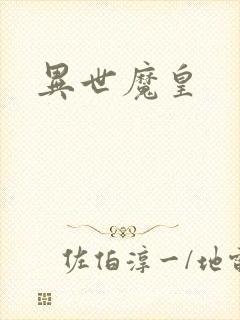 異世魔皇
佐伯淳一/地